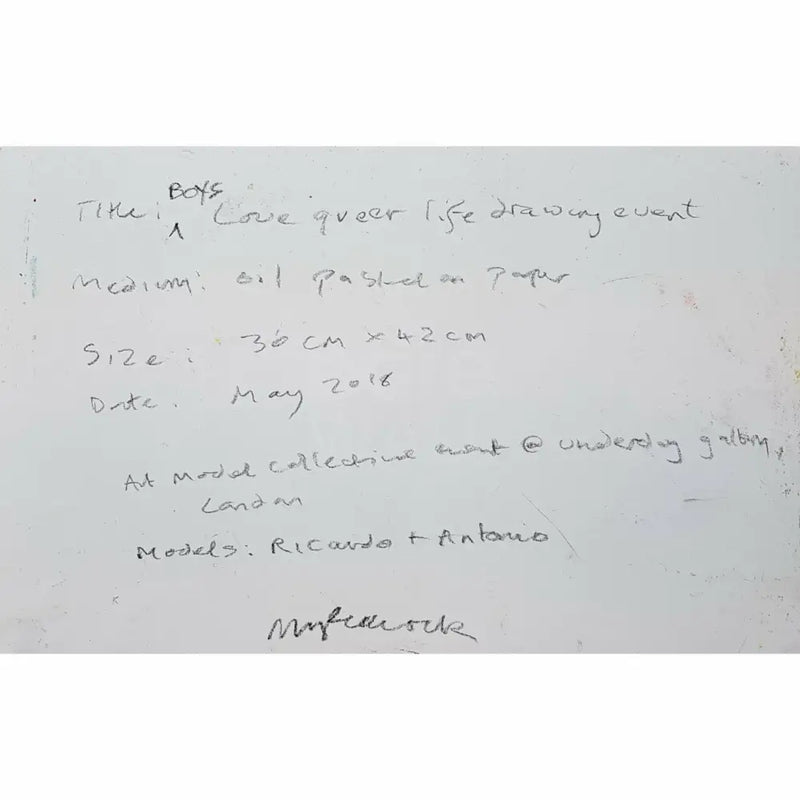 Title: BOYS Love queer life drawing event
Medium: oil pastel on paper
Size: 30 cm x 42 cm
Date. May 2018
Art Model Collective event @ underdog gallery,
London
Models: Ricardo + Antonio